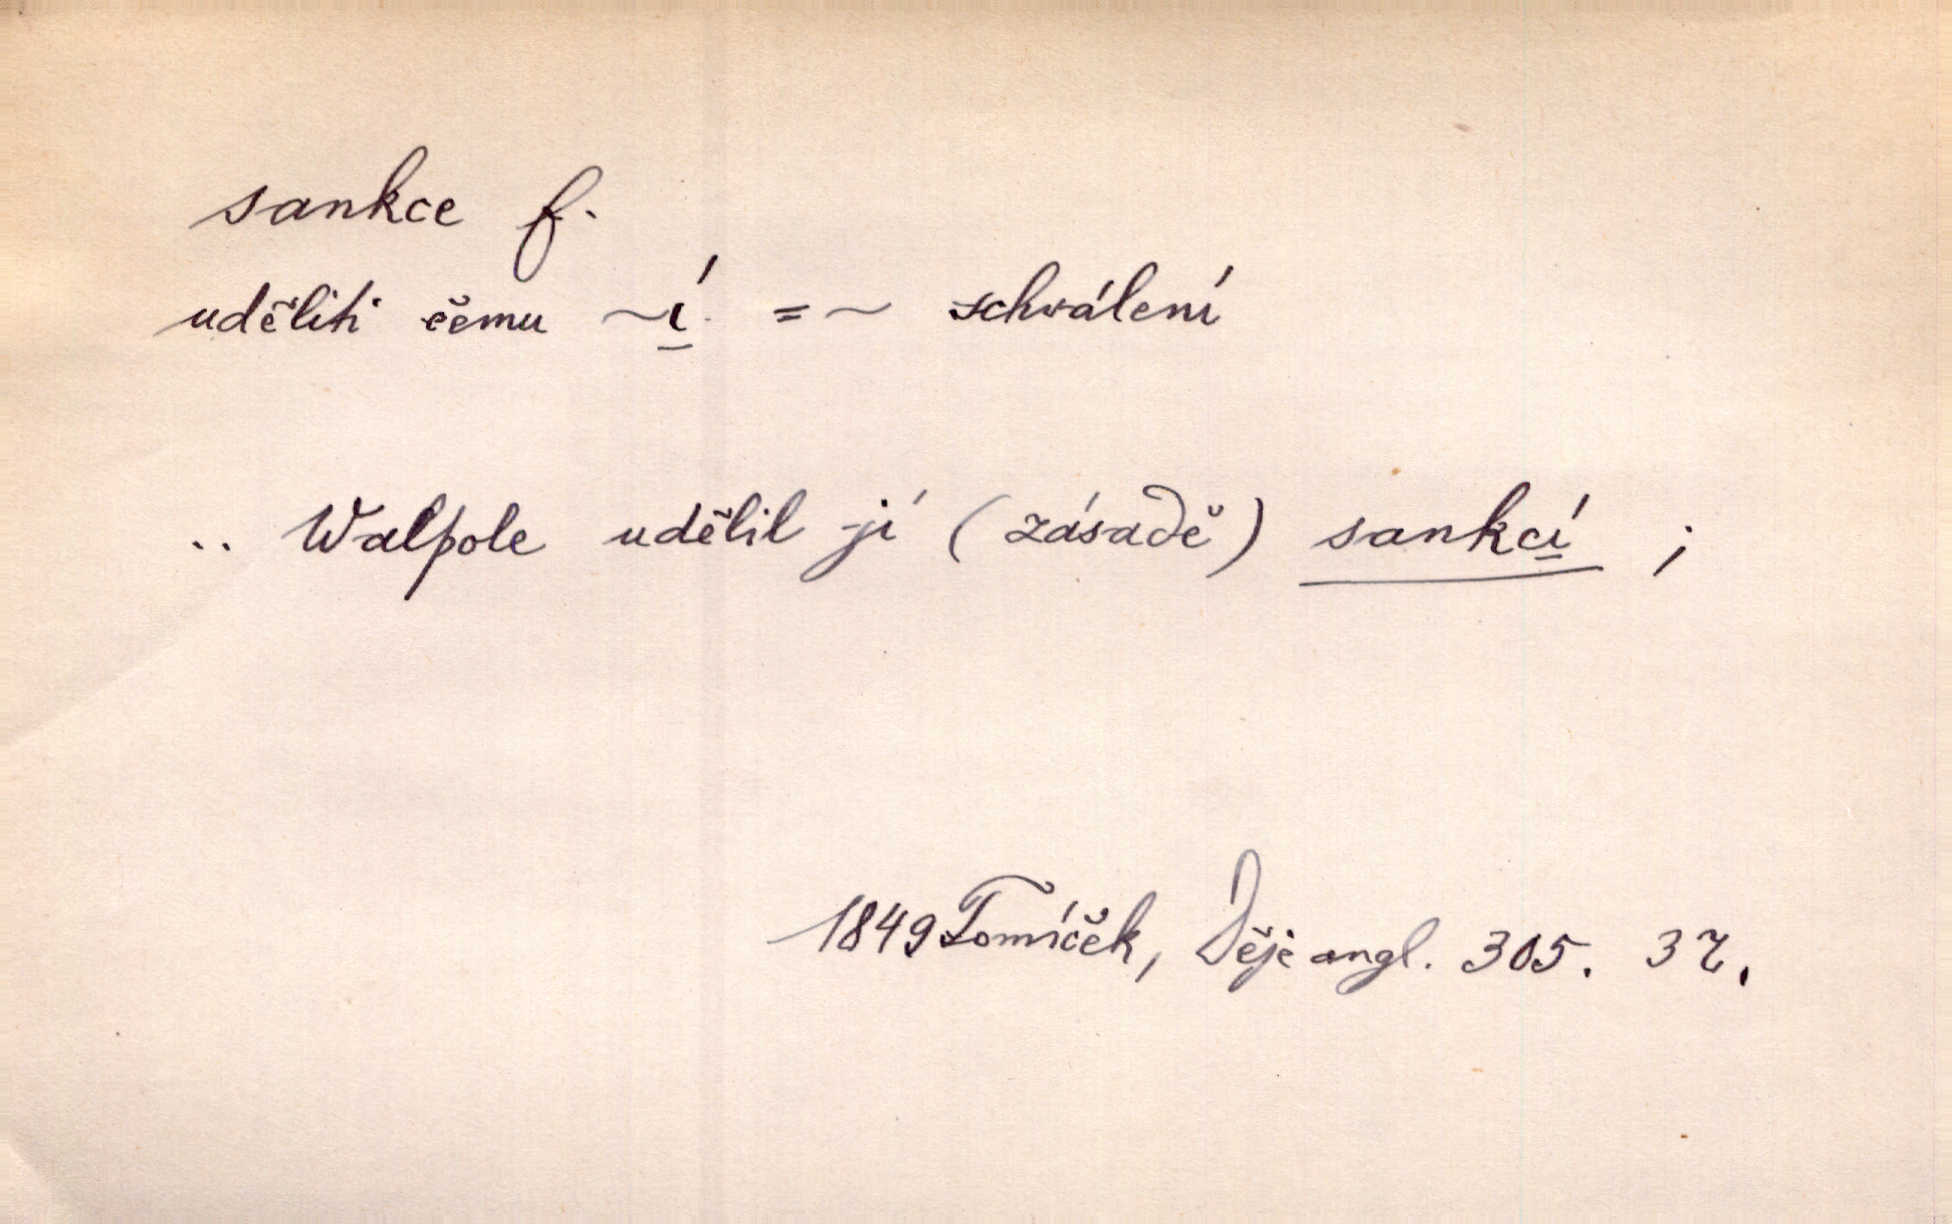 sankce f.
uděliti čemu ~í = ~ schválení
.. Walpole udělil jí (zásadě) sankcí ;
1849 Tomíček, Děje angl. 305. 32.